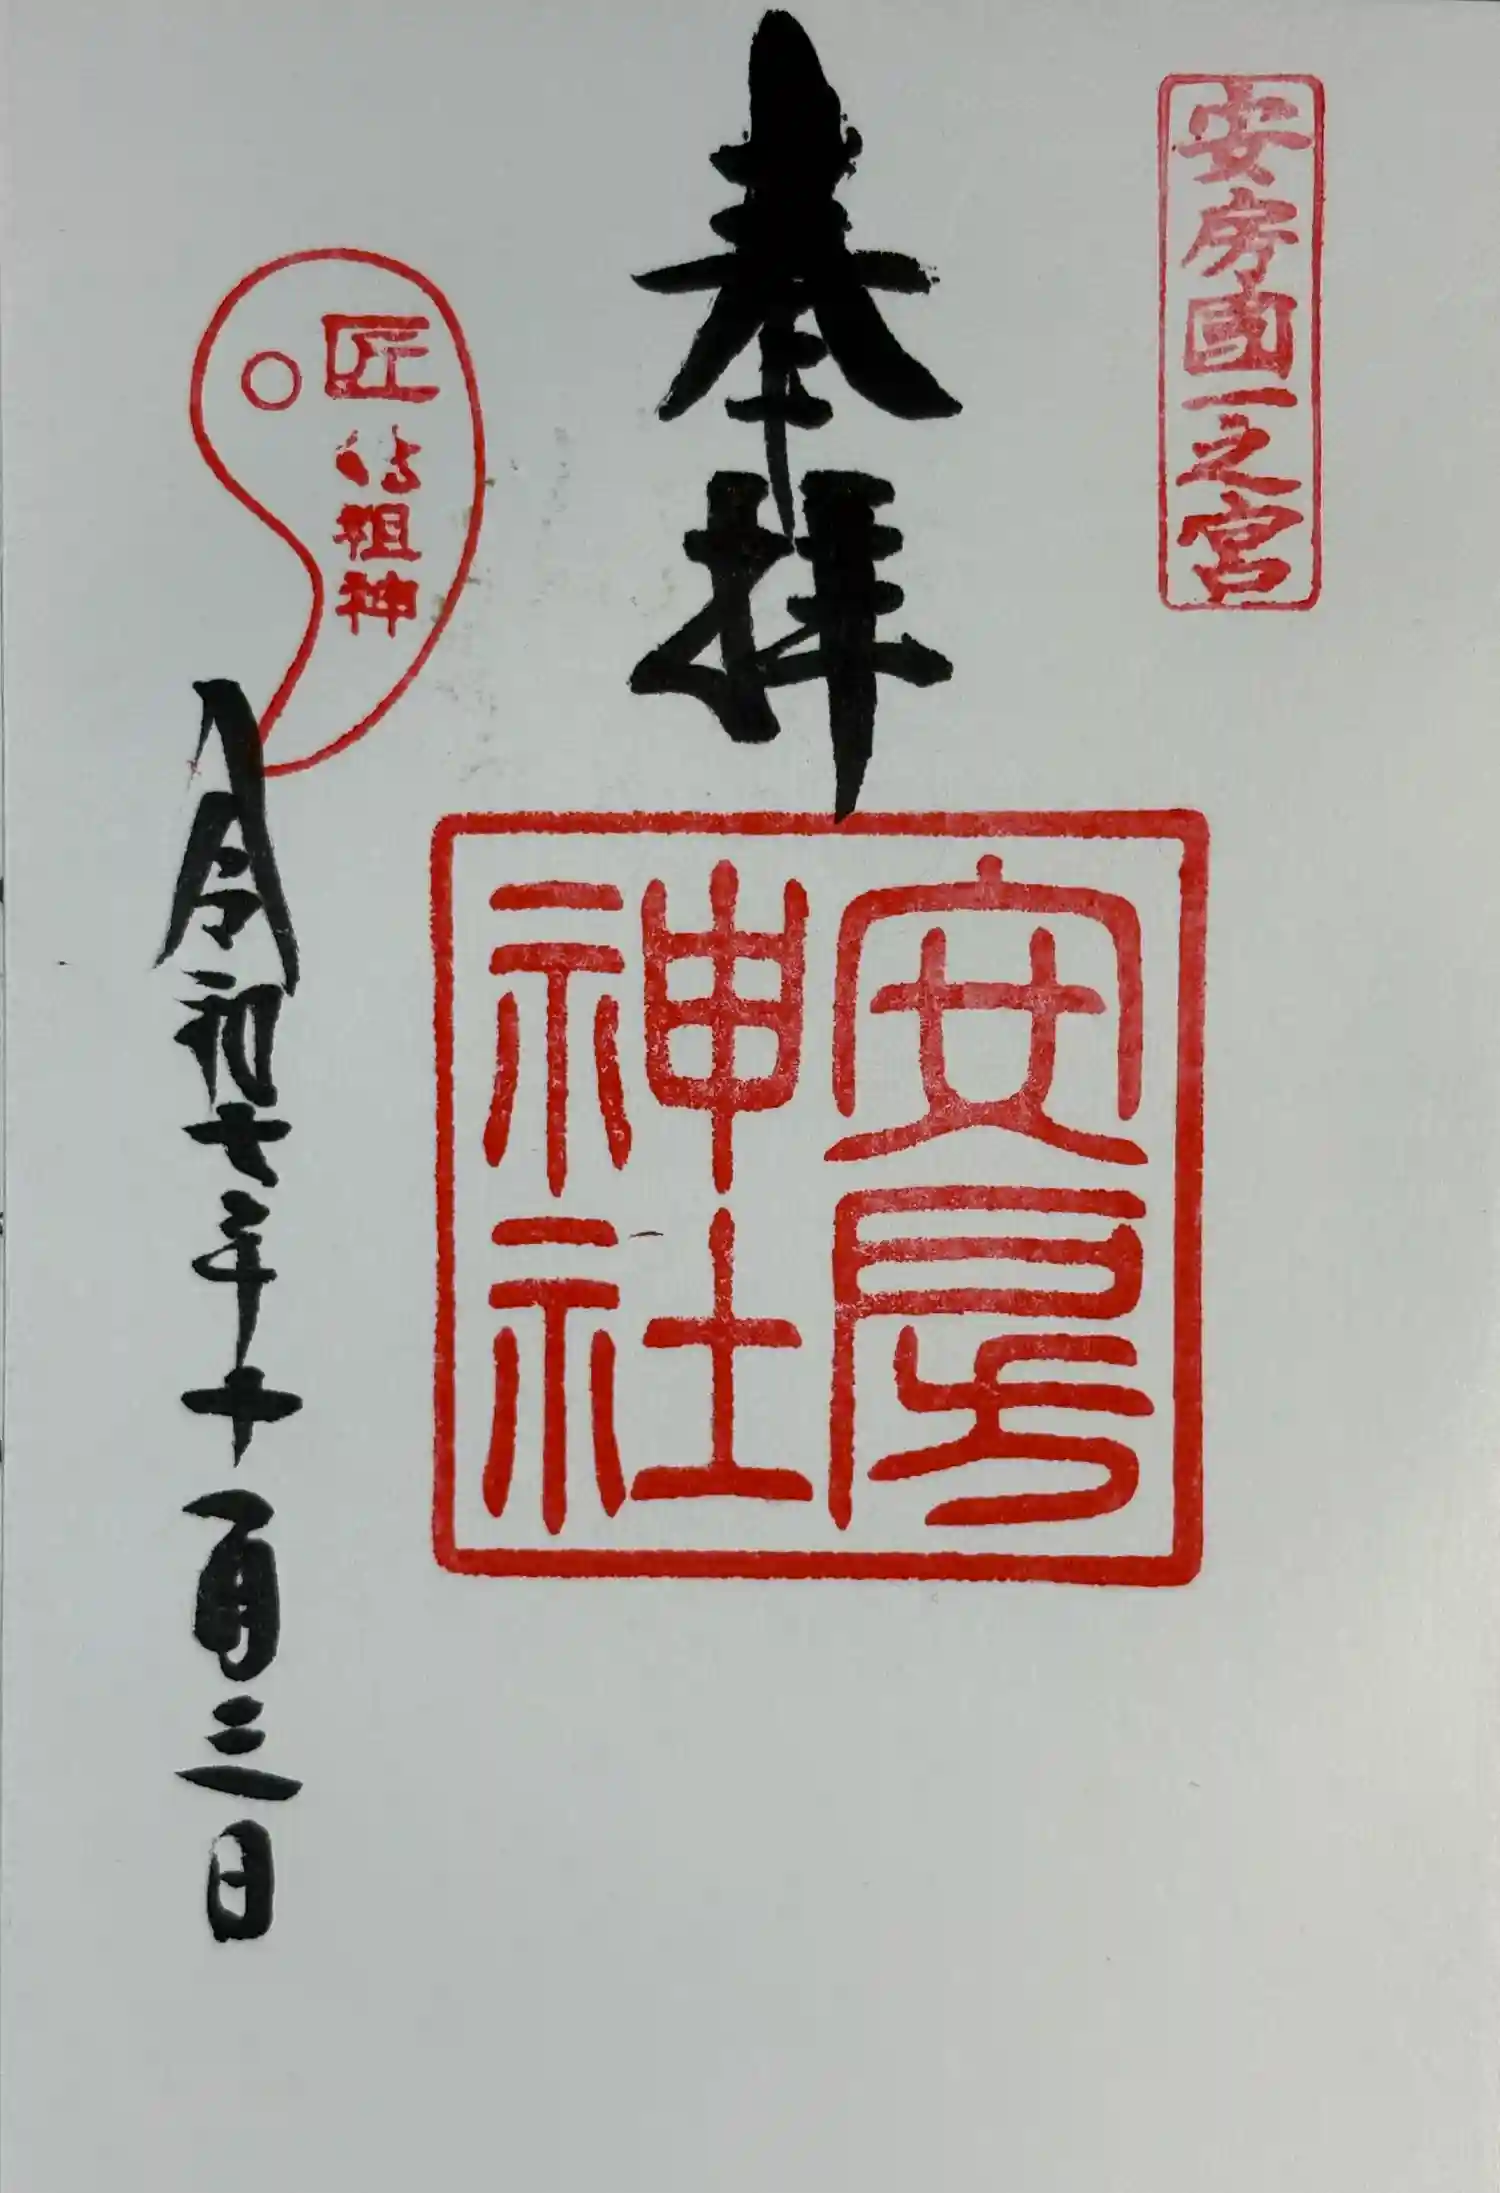 安房國一之宮
奉拝
安房
神社
匠祖神
令和七年十一月三日